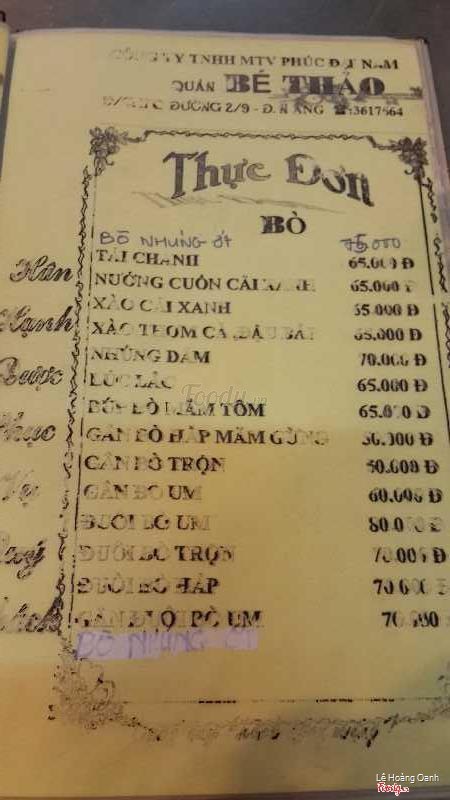 CÔNG TY TNHH MTV PHÚC ĐẠT NAM
QUÁN BÉ THẢO
ĐƯỜNG 2/9 - Đ. NẴNG ☎:3617664
Thực Đơn
BÒ
BÒ NHÚNG ỚT 75.000
TÁI CHANH 65.000 Đ
NƯỚNG CUỐN CẢI XANH 65.000 Đ
XÀO CẢI XANH 65.000 Đ
XÀO THƠM CÀ, ĐẬU BẮI 65.000 Đ
NHÚNG DẤM 70.000 Đ
LÚC LẮC 65.000 Đ
BÒ MẮM TÔM 65.000 Đ
GÂN BÒ HẤP MẮM GỪNG Đ
GÂN BÒ TRỘN 50.000 Đ
GÂN BÒ UM 60.000 Đ
ĐUÔI BÒ UM 80.000 Đ
ĐUÔI BÒ TRỘN 70.000 Đ
ĐUÔI BÒ HẤP 70.000 Đ
GÂN ĐUÔI BÒ UM 70.000 Đ
BÒ NHÚNG ỚT
Hân
Hạnh
Được
Phục
Vụ
Quý
Khách
Foody.vn
Lê Hoàng Oanh
Foody.vn